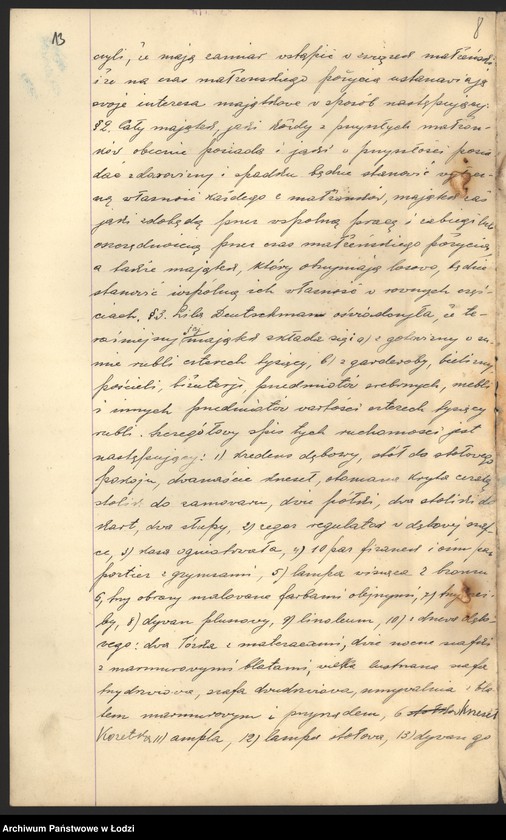 13
8
czyli, że mają zamiar wstąpić w związek małżeński
i że na czas małżeńskiego pożycia ustanawiają
swoje interesa majątkowe w sposób następujący:
§2. Cały majątek, jaki każdy z przyszłych małżon-
ków obecnie posiada i jaki w przyszłości posią-
dzie z darowizny i spadku będzie stanowić
ną własność każdego z małżonków, majątek zaś
jaki zdobędą przez wspólną pracę i zabiegi lub
oszczędnością przez czas małżeńskiego pożycia,
a także majątek, który otrzymają losowo, będzie
stanowić wspólną ich własność w równych częś-
ciach. §3. Liba Deutschman oświadczyła, że te-
raźniejszy jej majątek składa się: a) z gotowizny w su-
mie rubli czterech tysięcy, b) z garderoby, bielizny,
pościeli, biżuterji, przedmiotów srebrnych, mebli
i innych przedmiotów wartości czterech tysięcy
rubli. Szczegółowy spis tych ruchomości jest
następujący: 1) kredens dębowy, stół do stołowego
pokoju, dwanaście krzeseł, otomana kryta ceratą,
stolik do samowaru, dwie półki, dwa stoliki do
kart, dwa słupy, 2) zegar regulator w dębowej szaf-
ce, 3) kasa ogniotrwała, 4) 10 par firanek i ośm par
portier z gzymsami, 5) lampa wisząca z bronzu
6) trzy obrazy malowane farbami olejnymi, 7)
8) dywan pluszowy, 9) linoleum, 10) z drzewa dębo-
wego: dwa łóżka z materacami, dwie nocne szafki
z marmurowymi blatami, wielka lustrzana szafa
trzydrzwiowa, szafa dwudrzwiowa, umywalnia z bla-
tem marmurowym i przyrządem, 6 krzeseł
Kozetka 11) ampla, 12) lampa stołowa, 13) dywan go
Archiwum Państwowe w Łodzi